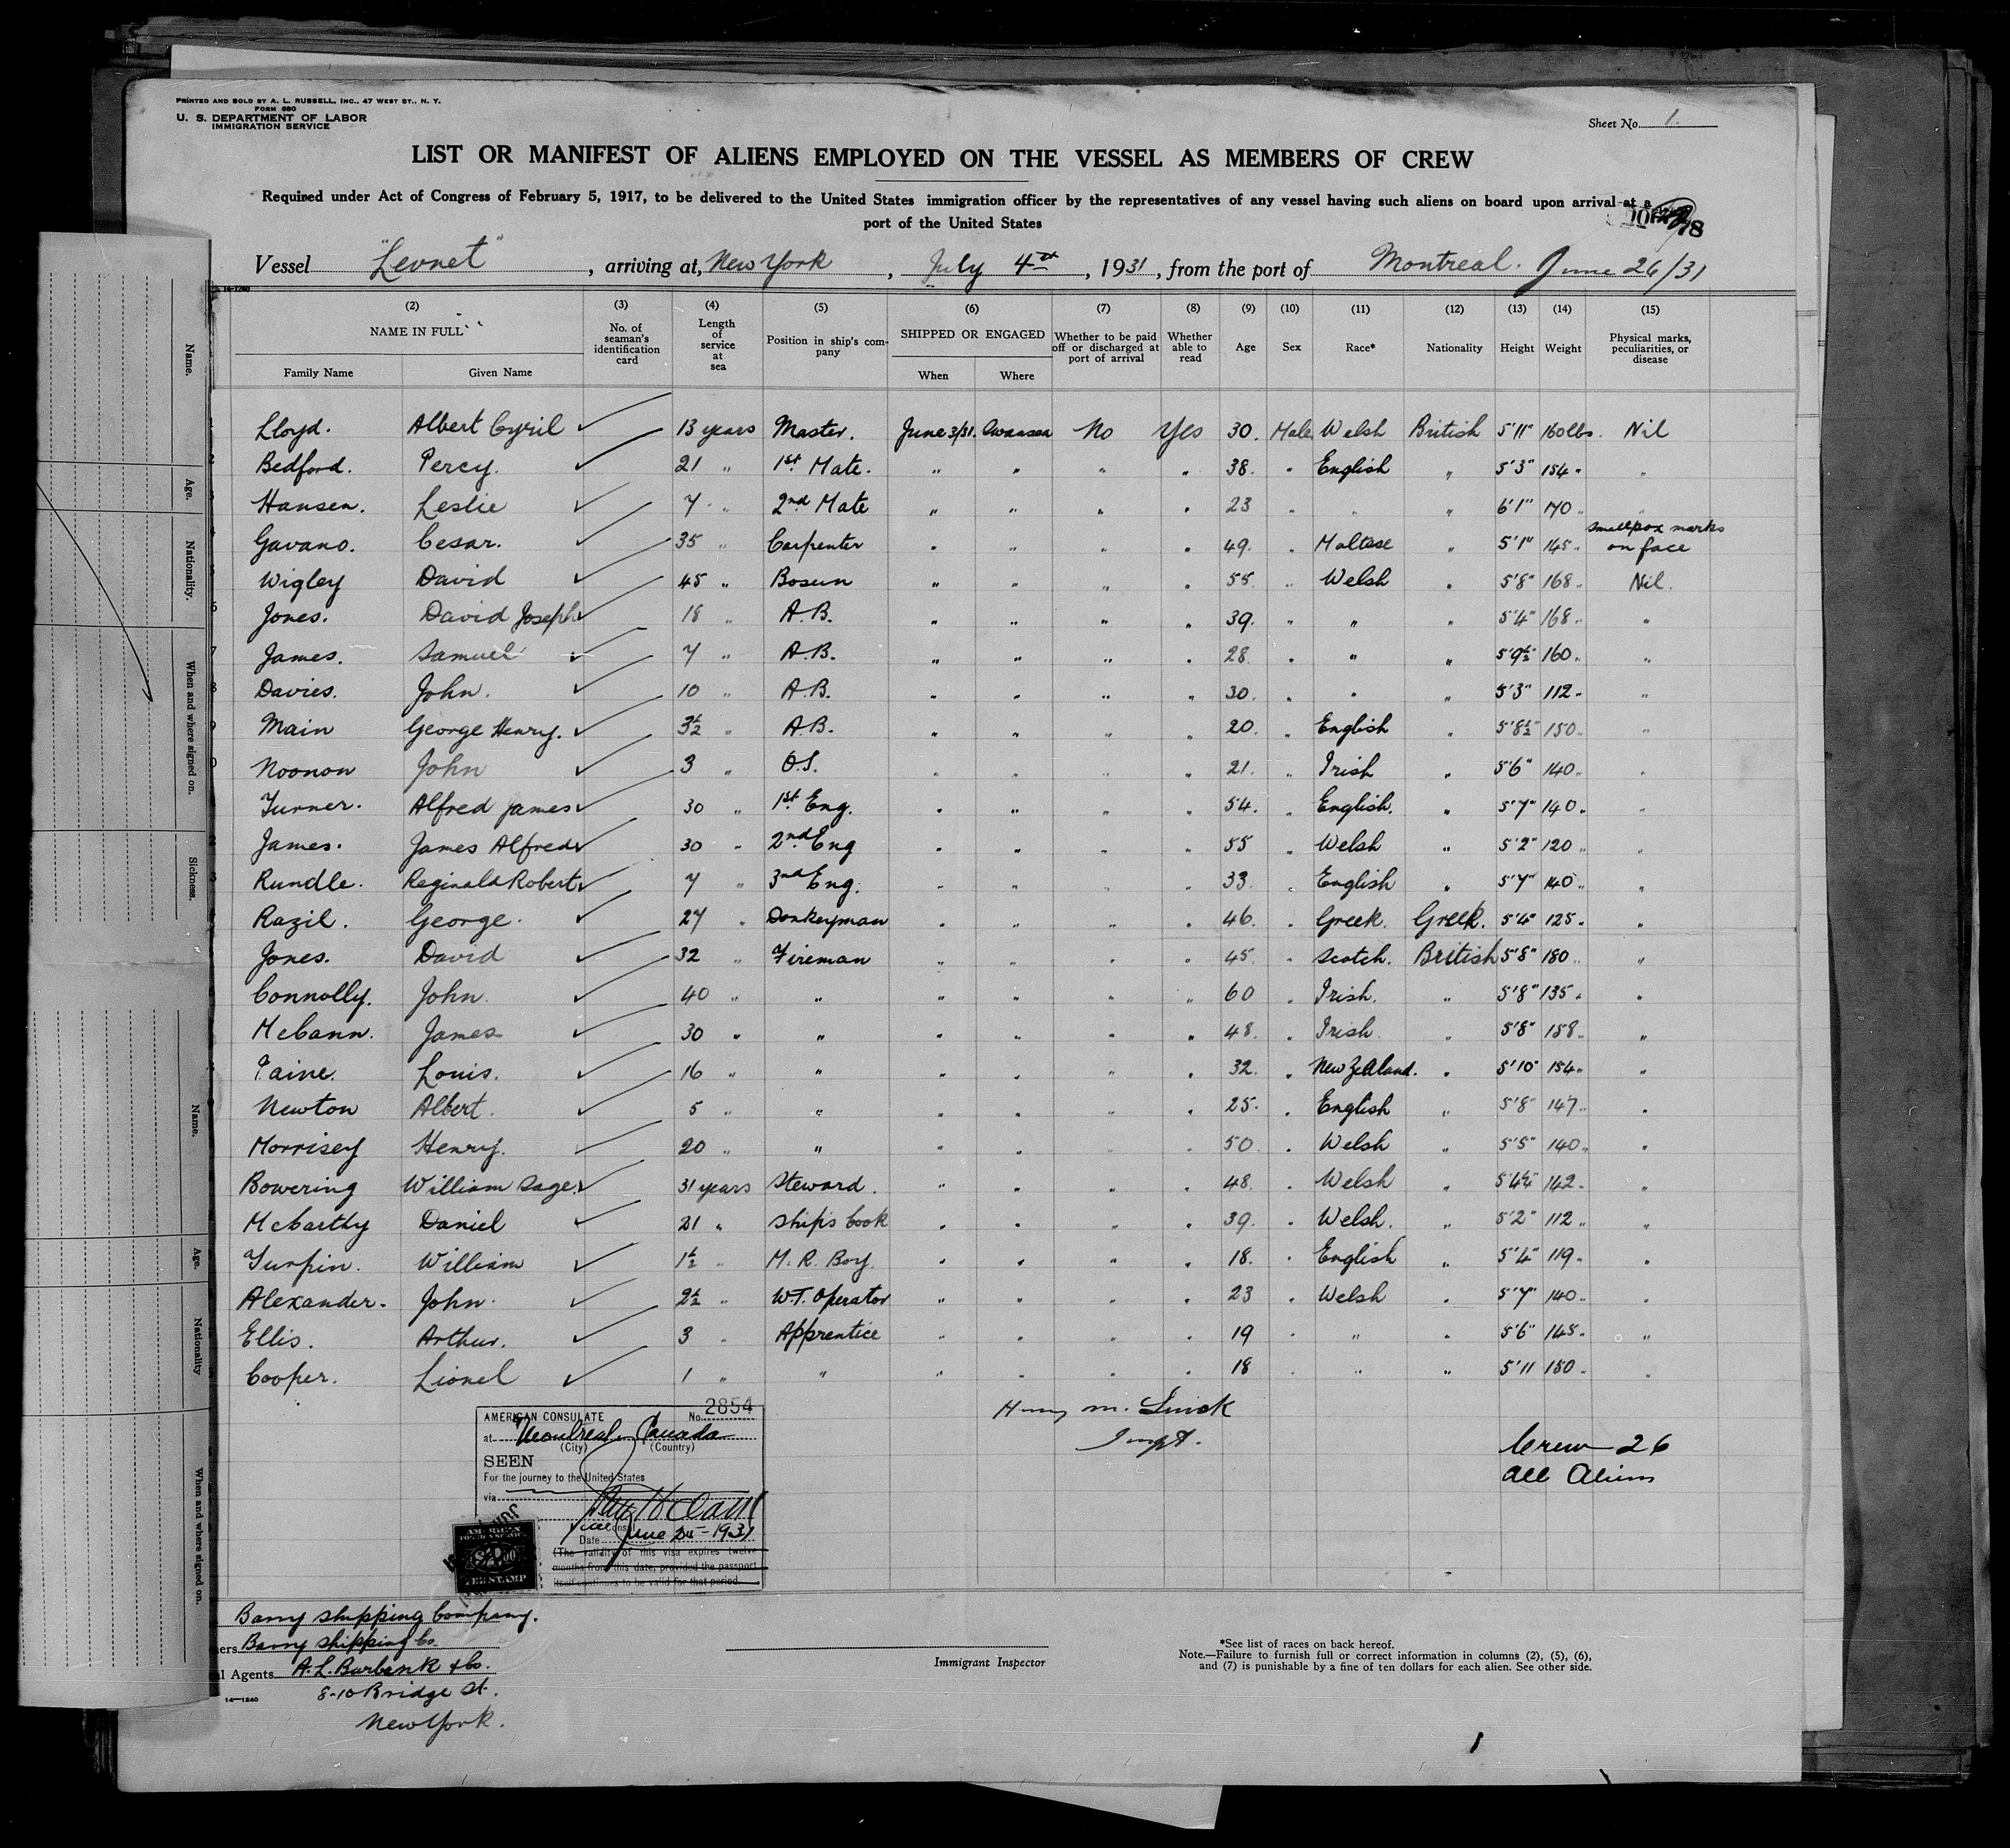 PRINTED AND SOLD BY A. L. RUSSELL, INC., 47 WEST ST., N. Y.
FORM 680
U. S. DEPARTMENT OF LABOR
IMMIGRATION SERVICE
Sheet No. 1
LIST OR MANIFEST OF ALIENS EMPLOYED ON THE VESSEL AS MEMBERS OF CREW
Required under Act of Congress of February 5, 1917, to be delivered to the United States immigration officer by the representatives of any vessel having such aliens on board upon arrival at a
port of the United States
Vessel "Levnet", arriving at, New York, July 4th, 1931, from the port of Montreal. June 26/31
14-1240
(2) (3) (4) (5) (6) (7) (8) (9) (10) (11) (12) (13) (14) (15)
NAME IN FULL No. of seaman's identification card Length of service at sea Position in ship's company SHIPPED OR ENGAGED Whether to be paid off or discharged at port of arrival Whether able to read Age Sex Race* Nationality Height Weight Physical marks, peculiarities, or disease
Family Name Given Name When Where
Lloyd. Albert Cyril ✓ 13 years Master. June 3/31. Swansea No Yes 30. Male Welsh British 5'11" 160lbs. Nil
Bedford. Percy. ✓ 21 " 1st Mate. " " " " 38. " English " 5'3" 154 " "
Hansen. Leslie ✓ 7 " 2nd Mate " " " " 23 " " " 6'1" 170 " "
Gavano. Cesar. ✓ 35 " Carpenter " " " " 49. " Maltese " 5'1" 145 " smallpox marks on face
Wigley David ✓ 45 " Bosun " " " " 55. " Welsh " 5'8" 168 " Nil.
Jones. David Joseph ✓ 18 " A.B. " " " " 39. " " " 5'4" 168 " "
James. Samuel ✓ 7 " A.B. " " " " 28. " " " 5'9½" 160 " "
Davies. John. ✓ 10 " A.B. " " " " 30. " " " 5'3" 112 " "
Main George Henry. ✓ 3½ " A.B. " " " " 20. " English " 5'8½" 150 " "
Noonon John ✓ 3 " O.S. " " " " 21. " Irish " 5'6" 140 " "
Turner. Alfred James ✓ 30 " 1st Eng. " " " " 54. " English. " 5'7" 140 " "
James. James Alfred ✓ 30 " 2nd Eng " " " " 55 " Welsh " 5'2" 120 " "
Rundle. Reginald Robert ✓ 7 " 3nd Eng. " " " " 33. " English " 5'7" 140 " "
Razil. George. ✓ 27 " Donkeyman " " " " 46. " Greek. Greek. 5'4" 125 " "
Jones. David ✓ 32 " Fireman " " " " 45. " Scotch. British 5'8" 180 " "
Connolly. John. ✓ 40 " " " " " " 60 " Irish. " 5'8" 135 " "
McCann. James ✓ 30 " " " " " " 48. " Irish. " 5'8" 158 " "
Louis. ✓ 16 " " " " " " 32. " New Zealand. " 5'10" 154 " "
Newton Albert. ✓ 5 " " " " " " 25. " English " 5'8" 147 " "
Morrisey Henry. ✓ 20 " " " " " " 50. " Welsh " 5'5" 140 " "
Bowering William Sage. ✓ 31 years Steward. " " " " 48. " Welsh " 142 " "
McCarthy Daniel ✓ 21 " Ships Cook " " " " 39. " Welsh. " 5'2" 112 " "
Turpin. William ✓ 1½ " M. R. Boy. " " " " 18. " English " 5'4" 119 " "
Alexander. John. ✓ 2½ " W.T. Operator " " " " 23 " Welsh " 5'7" 140 " "
Ellis. Arthur. ✓ 3 " Apprentice " " " " 19 " " " 5'6" 145 " "
Cooper. Lionel ✓ 1 " " " " " " 18 " " " 5'11 150 " "
AMERICAN CONSULATE No. 2854
at Montreal, Canada
(City) (Country)
SEEN
For the journey to the United States
via
Date June 1931
(The validity of this visa expires twelve
months from this date, provided the passport
itself continues to be valid for that period.
Crew 26
All Aliens
Barry Shipping Company.
Barry Shipping Co.
Agents A. L. Burbank & Co.
8-10 Bridge St.
New York.
14-1240
Immigrant Inspector
*See list of races on back hereof.
Note.—Failure to furnish full or correct information in columns (2), (5), (6),
and (7) is punishable by a fine of ten dollars for each alien. See other side.
Name.
Age.
Nationality.
When and where signed on.
Sickness.
Name.
Age.
Nationality
When and where signed on.